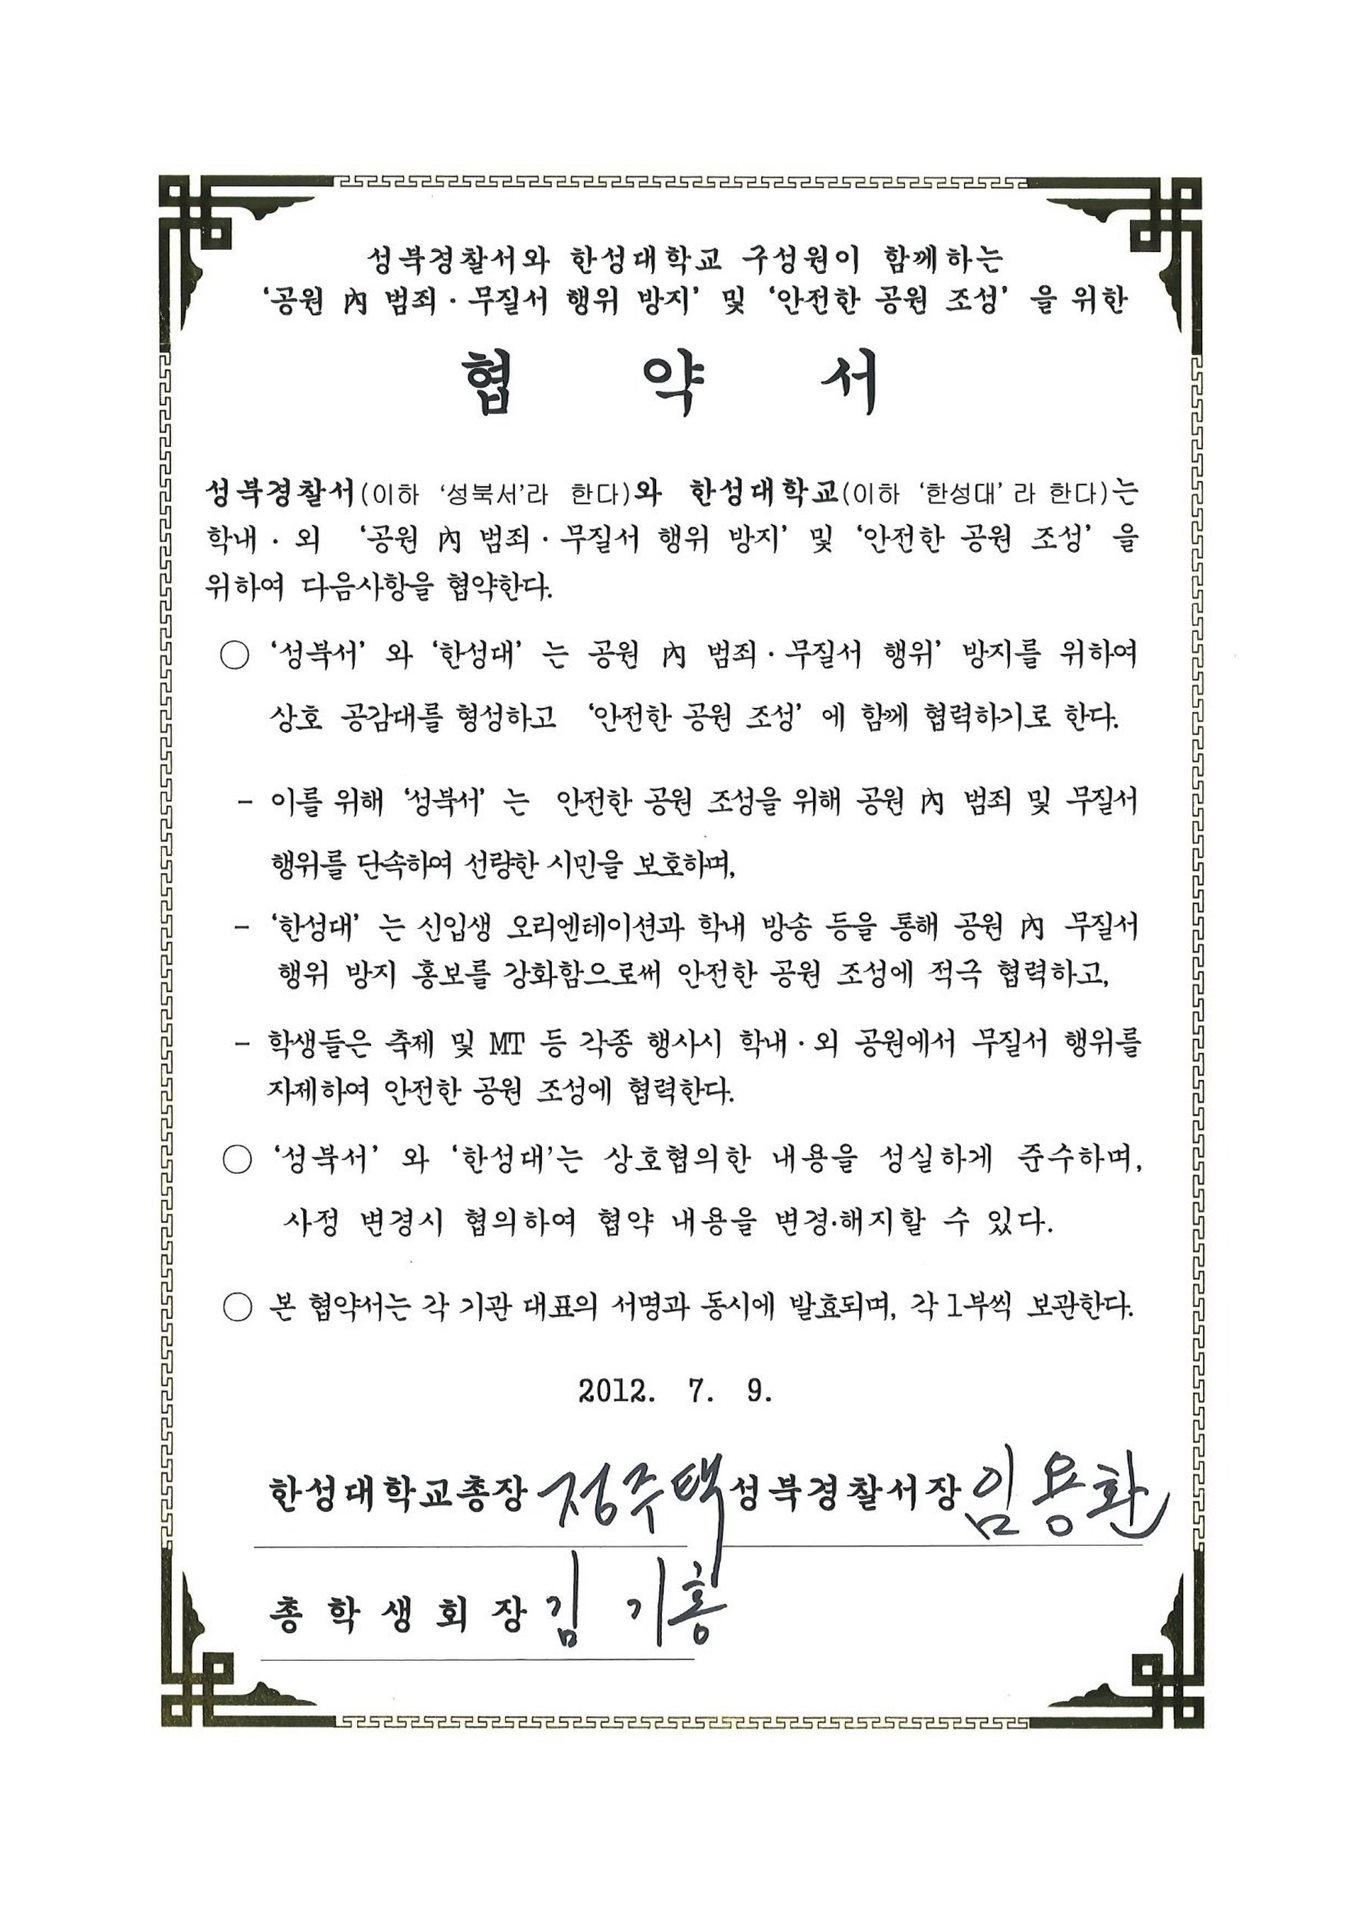 성북경찰서와 한성대학교 구성원이 함께하는
'공원 內 범죄·무질서 행위 방지' 및 '안전한 공원 조성' 을 위한
협 약 서
성북경찰서(이하 '성북서'라 한다)와 한성대학교(이하 '한성대' 라 한다)는
학내·외 '공원 內 범죄·무질서 행위 방지' 및 '안전한 공원 조성' 을
위하여 다음사항을 협약한다.
○ '성북서' 와 '한성대' 는 공원 內 범죄·무질서 행위' 방지를 위하여
상호 공감대를 형성하고 '안전한 공원 조성' 에 함께 협력하기로 한다.
- 이를 위해 '성북서' 는 안전한 공원 조성을 위해 공원 內 범죄 및 무질서
행위를 단속하여 선량한 시민을 보호하며,
- '한성대' 는 신입생 오리엔테이션과 학내 방송 등을 통해 공원 內 무질서
행위 방지 홍보를 강화함으로써 안전한 공원 조성에 적극 협력하고,
- 학생들은 축제 및 MT 등 각종 행사시 학내·외 공원에서 무질서 행위를
자제하여 안전한 공원 조성에 협력한다.
○ '성북서' 와 '한성대'는 상호협의한 내용을 성실하게 준수하며,
사정 변경시 협의하여 협약 내용을 변경·해지할 수 있다.
○ 본 협약서는 각 기관 대표의 서명과 동시에 발효되며, 각 1부씩 보관한다.
2012. 7. 9.
한성대학교총장 정주택 성북경찰서장 임용환
총학생회장 김기홍